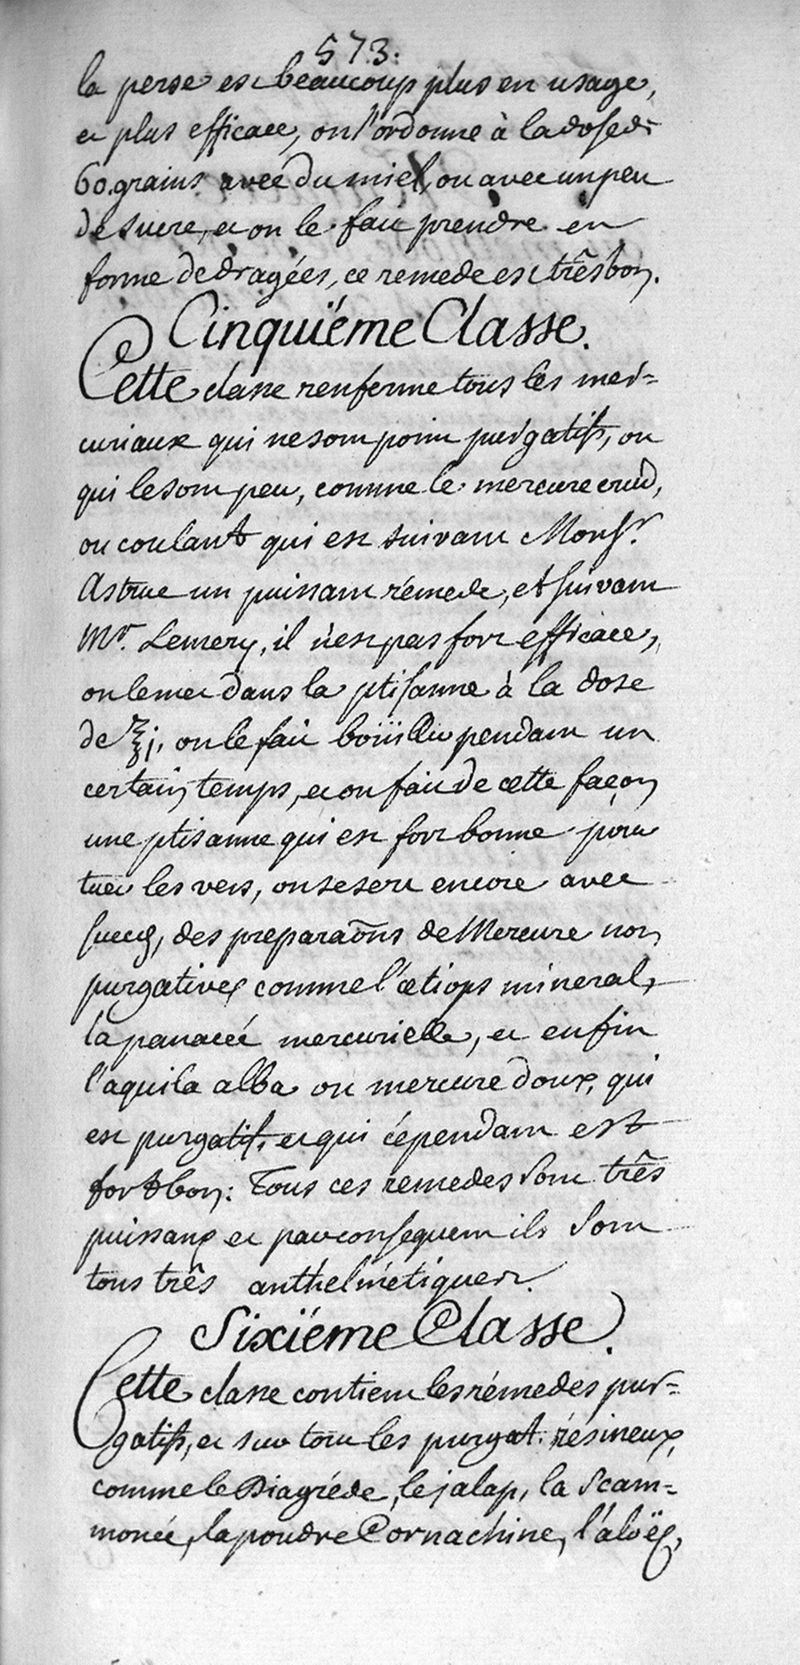 573.
la perse est beaucoup plus en usage,
et plus efficace, on l'ordonne à la dose de
60. grains avec du miel, ou avec un peu
de sucre, et on le fait prendre en
forme de dragées, ce remede est trêsbon.
Cinquiéme Classe.
Cette classe renferme tous les mer=
curiaux qui ne sont point purgatifs, ou
qui le sont peu, comme le mercure crud,
ou coulant qui est suivant Monsr.
Astruc un puissant rémede, et suivant
Mr. Lemery, il n'est pas fort efficace,
on le met dans la ptisanne à la dose
de ℥j, on le fait boüillir pendant un
certain temps, et on fait de cette façon
une ptisanne qui est fort bonne pour
tuer les vers, on se sert encore avec
succés, des preparaõns de Mercure non
purgatives comme l'œtiops mineral,
la panacée mercurielle, et enfin
l'aquila alba ou mercure doux, qui
est purgatif, et qui cépendant est
fort bon: Tous ces remedes sont três
puissans et par consequent ils sont
tous três anthelmétiques.
Sixiéme Classe.
Cette classe contient les rémedes pur=
gatifs, et sur tout les purgat. résineux,
comme le Diagréde, le jalap, la Scam=
monée, la poudre Cornachine, l'aloës,